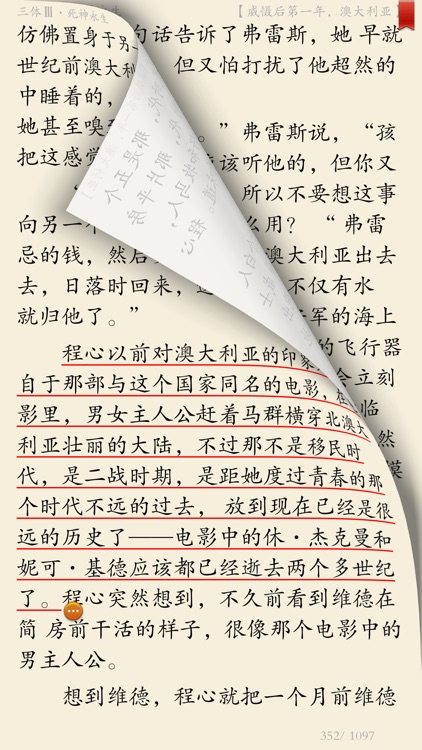 三体Ⅲ·死神永生 【威慑后第一年，澳大利亚】
仿佛置身于另一 句话告诉了弗雷斯，她 早就
世纪前澳大利 但又怕打扰了他超然的
中睡着的，
她甚至嗅到 。”弗雷斯说，“孩
把这感觉 该听他的，但你又
所以不要想这事
向另一个 么用？ “ 弗雷
忌的钱，然后 澳大利亚出去
去，日落时回来，这 不仅有水
就归他了。” 军的海上
程心以前对澳大利亚的印象 的飞行器
自于那部与这个国家同名的电影，在 会立刻
影里，男女主人公赶着马群横穿北澳大 临
利亚壮丽的大陆，不过那不是移民时 然
代，是二战时期，是距她度过青春的那 漠
个时代不远的过去， 放到现在已经是很
远的历史了——电影中的休·杰克曼和
妮可·基德应该都已经逝去两个多世纪
了。程心突然想到，不久前看到维德在
简 房前干活的样子，很像那个电影中的
男主人公。
想到维德，程心就把一个月前维德
352/ 1097